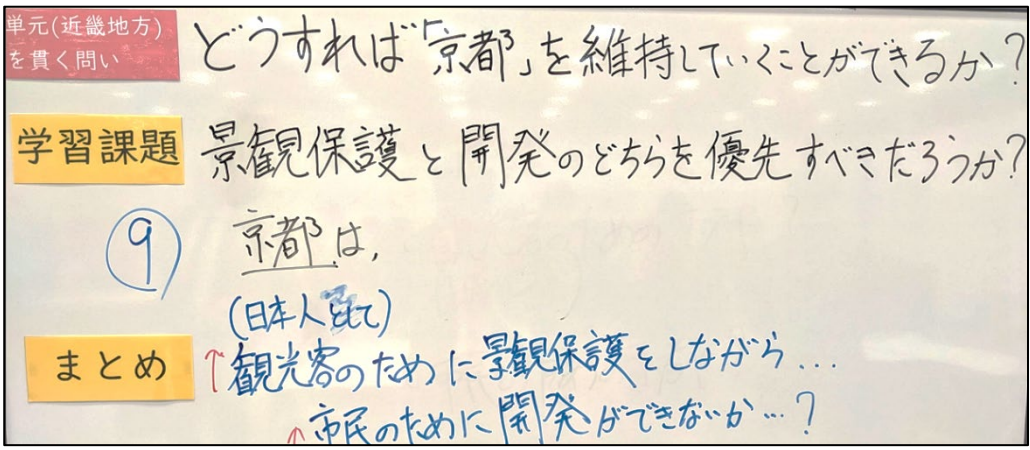 単元(近畿地方)
を貫く問い
どうすれば「京都」を維持していくことができるか?
学習課題
景観保護と開発のどちらを優先すべきだろうか?
⑨
京都は,
(日本人として)
まとめ
↑観光客のために景観保護をしながら...
↑市民のために開発ができないか...?